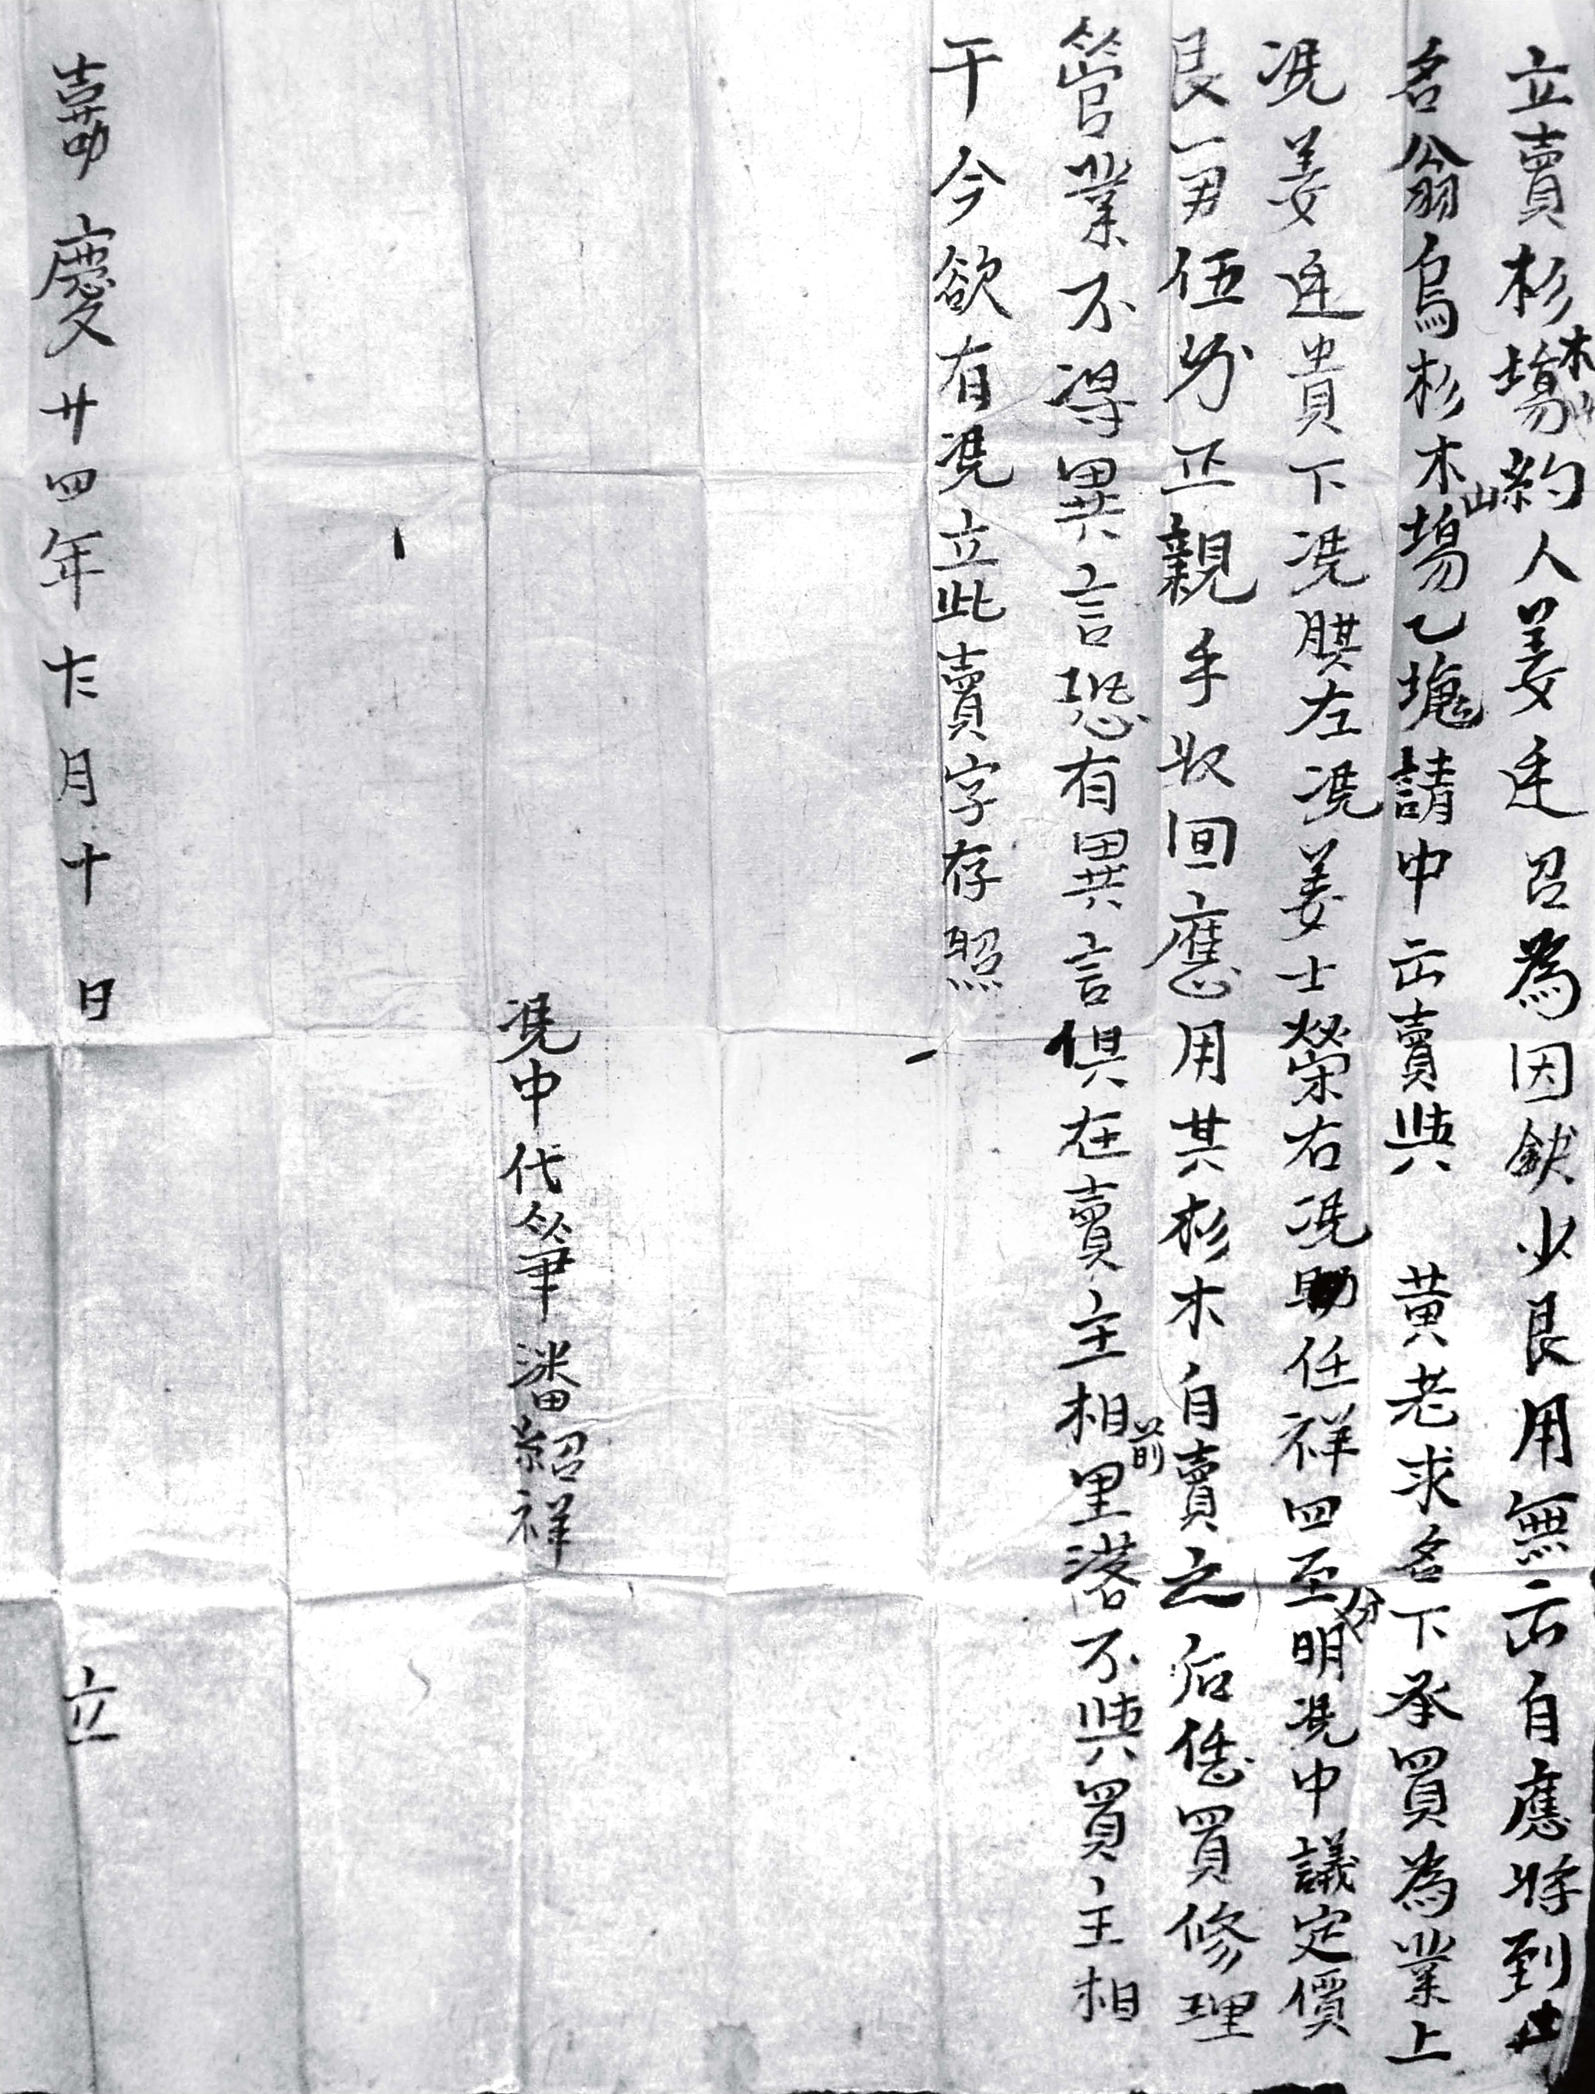 立賣杉木塲約人姜廷召為因缺少艮用無出自應將到山
名翁烏杉木山塲乙塊請中出賣與 黃老求名下承買為業上
凴姜廷貴下凴膜左凴姜士榮右凴助任祥四至分明凴中議定價
艮一両伍分正親手收回應用其杉木自賣之后任憑買修理
管業不得異言恐有異言俱在賣主相前里落不與買主相
干今欲有凴立此賣字存照
凴中代筆潘紹祥
嘉慶廿四年 月十日 立